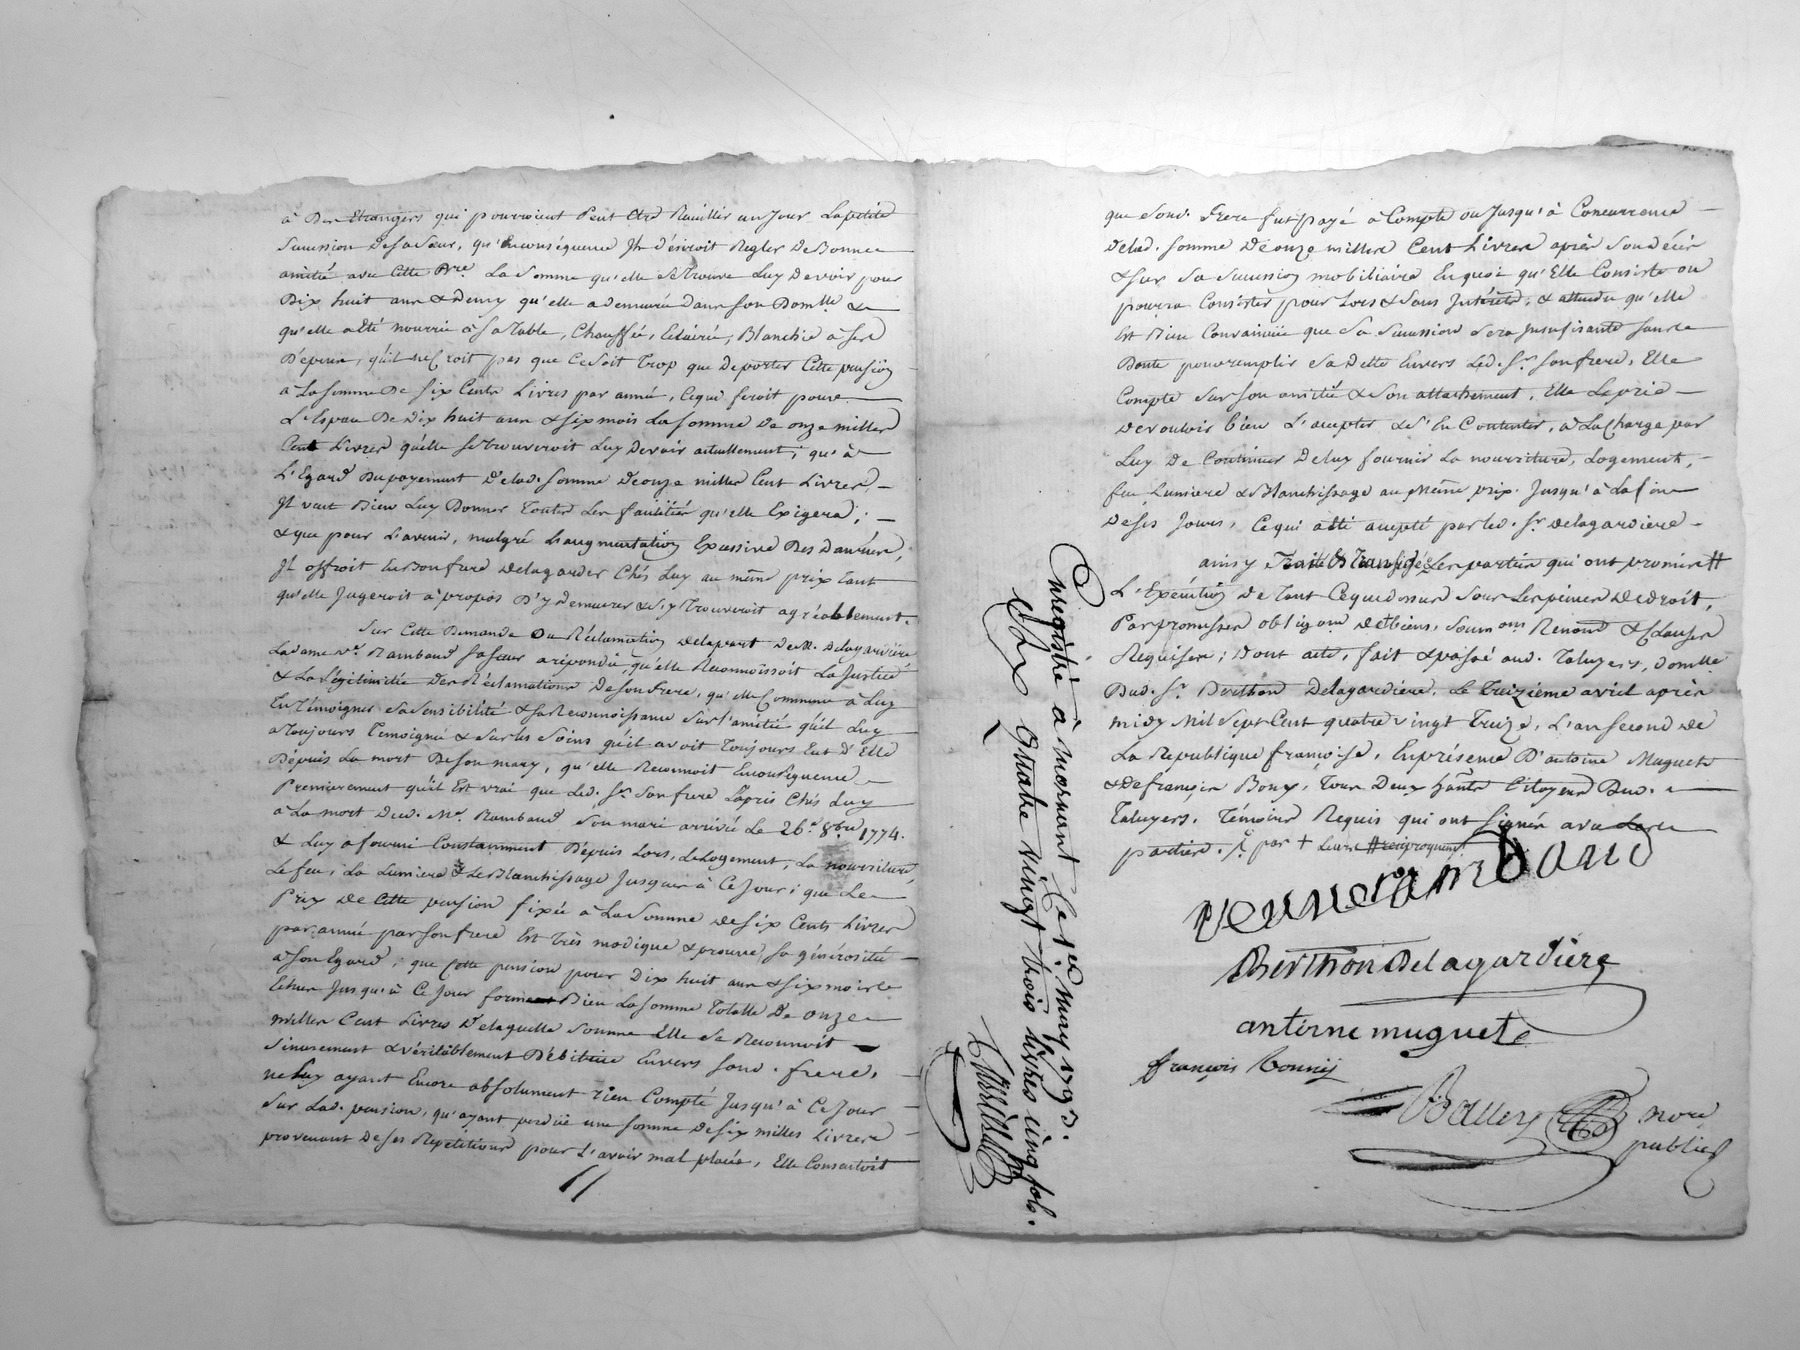 à Des Etrangers qui pourroient Peut Etre Rueillir un Jour Lapetite
Sucession Desa Sœur, qu'En conséquence Jl désiroit Regler De Bonne
amitié avec Cette Dre La Somme qu'elle se trouve Luy Devoir pour
Dix huit ans & Demy qu'elle a demeurée Dans Son Domlle &
qu'elle a Eté nourrie à Sa Table, Chauffée, Eclairée, Blanchie à ses
Dépens, qu'il ne Croit pas que Ce Soit Trop que De porter Cette pension
à La Somme De Six Cents Livres par année, Ce qui feroit pour
L'Espace De Dix huit ans & six mois La Somme De onze milles
Cent Livres qu'elle se trouveroit Luy Devoir actuellement; qu'à
L'Egard Du payement De lad. Somme De onze milles Cent Livres,
Jl veut Bien Luy Donner Toutes Les facilités qu'elle Exigera;
& que pour L'avenir, malgré L'augmentation Excessive Des Danrées,
Jl offroit En Bon frere De la garder Chés Luy au même prix tant
qu'elle Jugeroit à propos D'y Demeurer & s'y Trouveroit agréablement.
Sur Cette Demande Ou Réclamation De la part De M. Delagardiere
La Dame Ve. Rambaud Sa Sœur a répondu, qu'elle Reconnoissoit La Justice
& La Légitimitée Des Réclamations De Son Frere, qu'elle Commence à Luy
En Témoigner Sa Sensibilité & Sa Reconnoissance Sur L'amitié qu'il Luy
a Toujours Temoigné & Sur les Soins qu'il avoit Toujours Eut D'Elle
Dépuis La mort De Son mary, qu'elle Reconnoit En conséquence
Premierement qu'il Est vrai que Led. Sr. Son frere L'a pris Chés Luy
à La mort Dud. Mr. Rambaud Son mari arrivée Le 26e. 8bre 1774.
& Luy a fourni Constamment Dépuis Lors, Le Logement, La nourriture,
Le feu, La Lumiere & Le Blanchissage Jusques à Ce Jour; que Le
Prix De Cette pension fixée à La Somme De Six Cents Livres
par année par Son frere Est Très modique & prouve Sa générosité
à Son Egard; que Cette pension pour Dix huit ans & Six mois
Echus Jusqu'à Ce Jour forment Bien La Somme Totalle De onze
milles Cent Livres De laquelle Somme Elle Se Reconnoit
Sincerement & véritablement Débitrice Envers Sond. frere,
ne Luy ayant Encore absolument rien Compté Jusqu'à Ce Jour
Sur Lad. pension, qu'ayant perdüe une Somme De Six milles Livres
provenant De Ses Répetitions pour L'avoir mal placée, Elle Consentoit
que Sond. Frere fut payé à Compte ou Jusqu'à Concurrence
De lad. Somme De onze milles Cent Livres après Son décès
& sur Sa Sucession mobiliaire En quoi qu'Elle Consiste ou
pourra Consister pour Lors & Sans Intérets; & attendu qu'elle
Est Bien Convaincüe que Sa Sucession Sera Insufisante Sans
Doute pour remplir Sa Dette Envers Led. Sr. Son frere, Elle
Compte Sur Son amitié & Son attachement, Elle Le prie
De vouloir bien L'accepter & S'En Contenter, à La Charge par
Luy De Continuer De luy fournir La nourriture, Logement,
feu Lumiere & Blanchissage au Même prix Jusqu'à La fin
De ses Jours, Ce qui a été accepté par led. Sr. Delagardiere
ainsy Traité & Transigé Les parties qui ont promis #
L'Exécution De Tout Ce que dessus Sous Les peines De Droit,
Par promesses obligaon De Biens, Soumons Renons & Clauses
Requises; Dont acte, fait & passé aud. Taluyers, Domlle
Dud. Sr. Berthon Delagardiere, Le Treizieme avril après
midy Mil Sept Cent quatre vingt Treize, L'an Second De
La Republique françoise, En présence D'antoine Muguet
& De françois Bony, Tous Deux habts Citoyens Dud.
Taluyers, Témoins Requis qui ont Signés avec Les
parties. /. par + Leurs # réciproquemt
veuve rambaud
Berthon Delagardiere
antoine muguet
françois bonnij
Balley nore
public
Enregistré à mornant Le 1er may 1793.
Reçu Quatre vingt trois livres cinq sols.